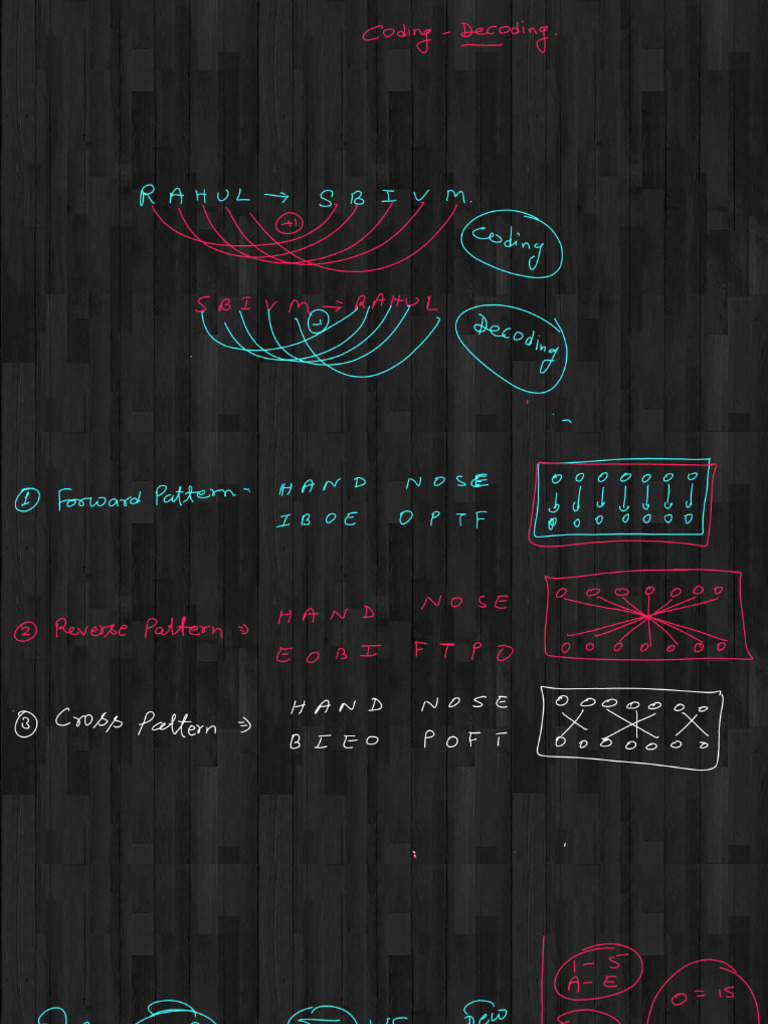 Coding - Decoding.
R A H U L → S B I V M.
+1
Coding
S B I V M → R A H U L
-1
Decoding
① Forward Pattern - H A N D N O S E
I B O E O P T F
② Reverse Pattern ⇒ H A N D N O S E
E O B I F T P O
③ Cross Pattern ⇒ H A N D N O S E
B I E O P O F T
1 - 5
A - E
O = 15